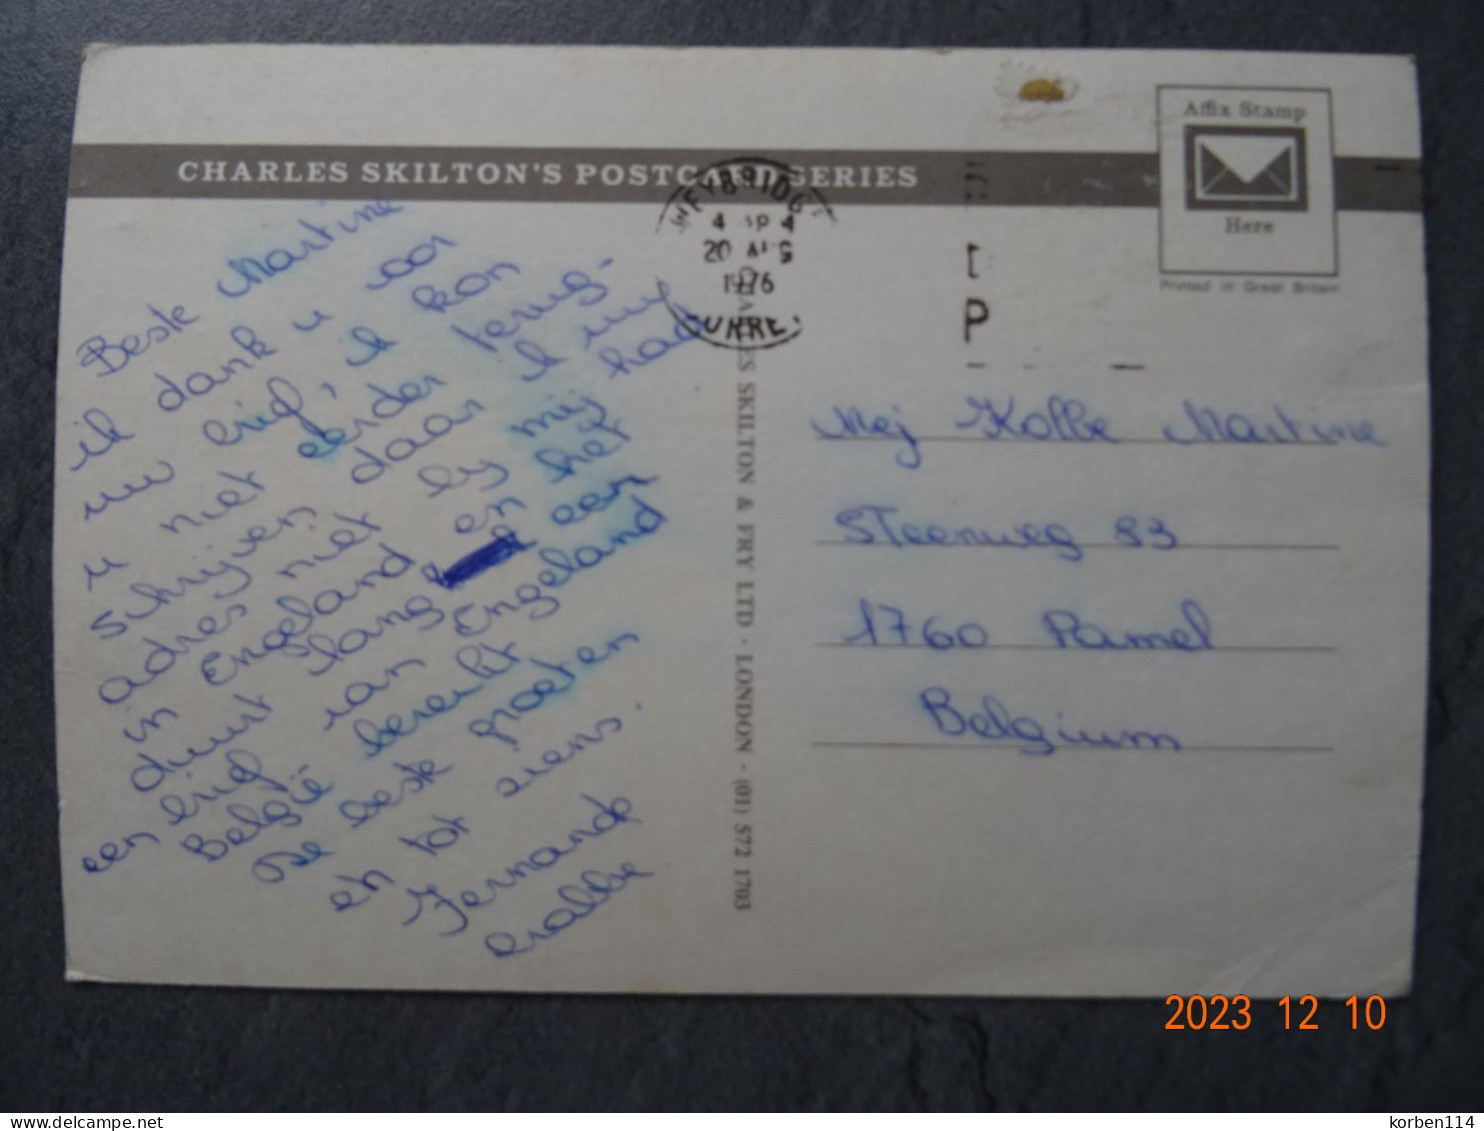 CHARLES SKILTON'S POSTCARD SERIES
Affix Stamp
Here
Printed in Great Britain
WEYBRIDGE
20 AUG
1976
SURREY
P
Beste Martine
ik dank u voor
uw brief, ik kon
u niet eerder terug-
schrijven daar ik uw
adres niet bij mij had
in Engeland en het
duurt lang een
een brief van Engeland
België bereikt
De beste groeten
en tot ziens.
Fernande
CHARLES SKILTON & FRY LTD · LONDON · (01) 572 1703
Mej Kolbe Martine
Steenweg 83
1760 Pamel
Belgium
2023 12 10
korben114